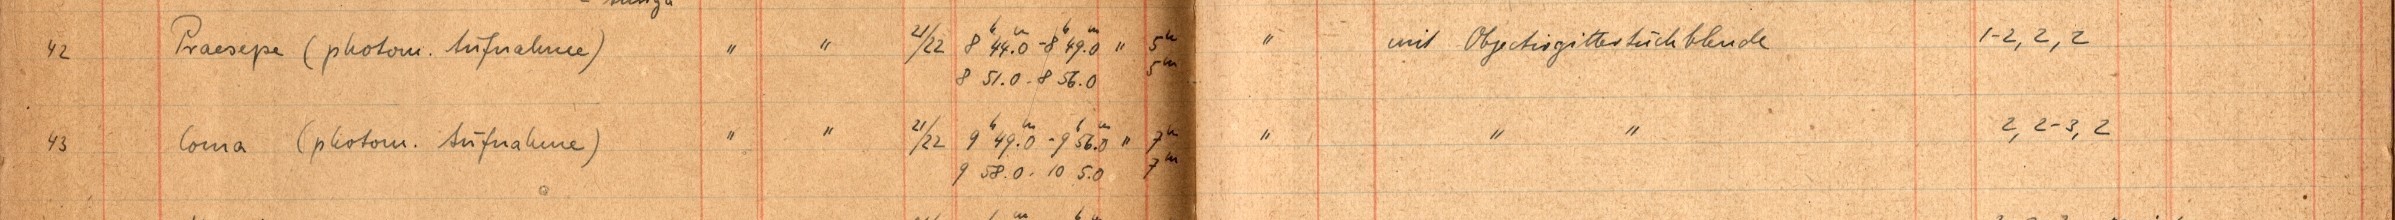 42 Praesepe (photom. Aufnahme) " " 21/22 8h 44.0m - 8h 49.0m " 5m " mit Objectivgittertuchblende 1-2, 2, 2
8 51.0 - 8 56.0 5m
43 Coma (photom. Aufnahme) " " 21/22 9h 49.0m - 9h 56.0m " 7m " " " 2, 2-3, 2
9 58.0 - 10 5.0 7m